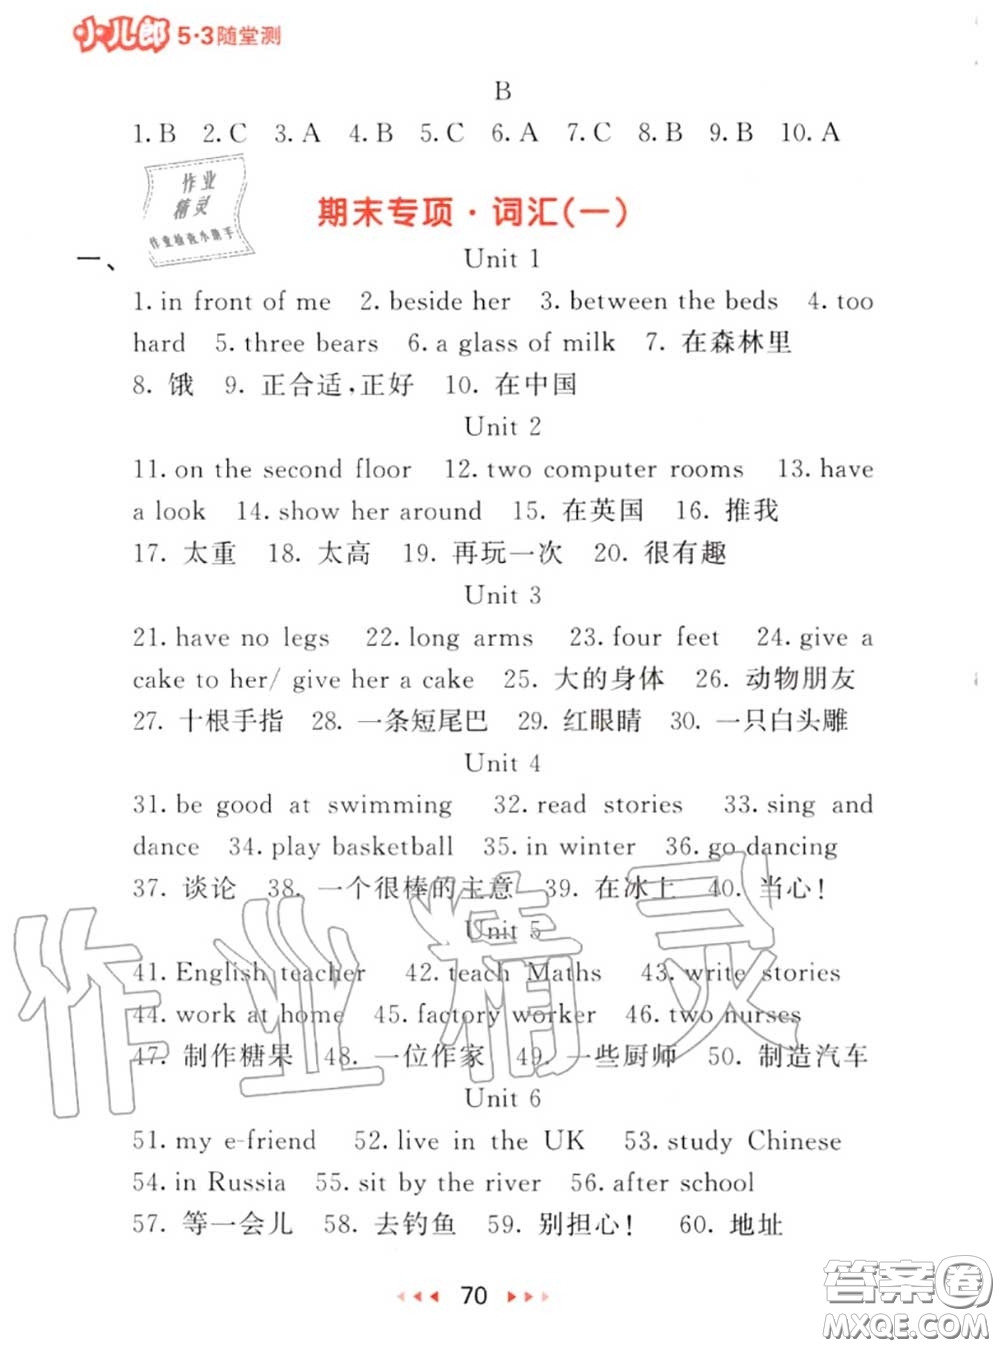 小儿郎 5·3随堂测
B
1. B 2. C 3. A 4. B 5. C 6. A 7. C 8. B 9. B 10. A
作业
精灵
作业检查小助手
期末专项·词汇(一)
一、 Unit 1
1. in front of me 2. beside her 3. between the beds 4. too
hard 5. three bears 6. a glass of milk 7. 在森林里
8. 饿 9. 正合适,正好 10. 在中国
Unit 2
11. on the second floor 12. two computer rooms 13. have
a look 14. show her around 15. 在英国 16. 推我
17. 太重 18. 太高 19. 再玩一次 20. 很有趣
Unit 3
21. have no legs 22. long arms 23. four feet 24. give a
cake to her/ give her a cake 25. 大的身体 26. 动物朋友
27. 十根手指 28. 一条短尾巴 29. 红眼睛 30. 一只白头雕
Unit 4
31. be good at swimming 32. read stories 33. sing and
dance 34. play basketball 35. in winter 36. go dancing
37. 谈论 38. 一个很棒的主意 39. 在冰上 40. 当心!
作业精灵
Unit 5
41. English teacher 42. teach Maths 43. write stories
44. work at home 45. factory worker 46. two nurses
47. 制作糖果 48. 一位作家 49. 一些厨师 50. 制造汽车
Unit 6
51. my e-friend 52. live in the UK 53. study Chinese
54. in Russia 55. sit by the river 56. after school
57. 等一会儿 58. 去钓鱼 59. 别担心! 60. 地址
70
答案圈
MXQE.COM